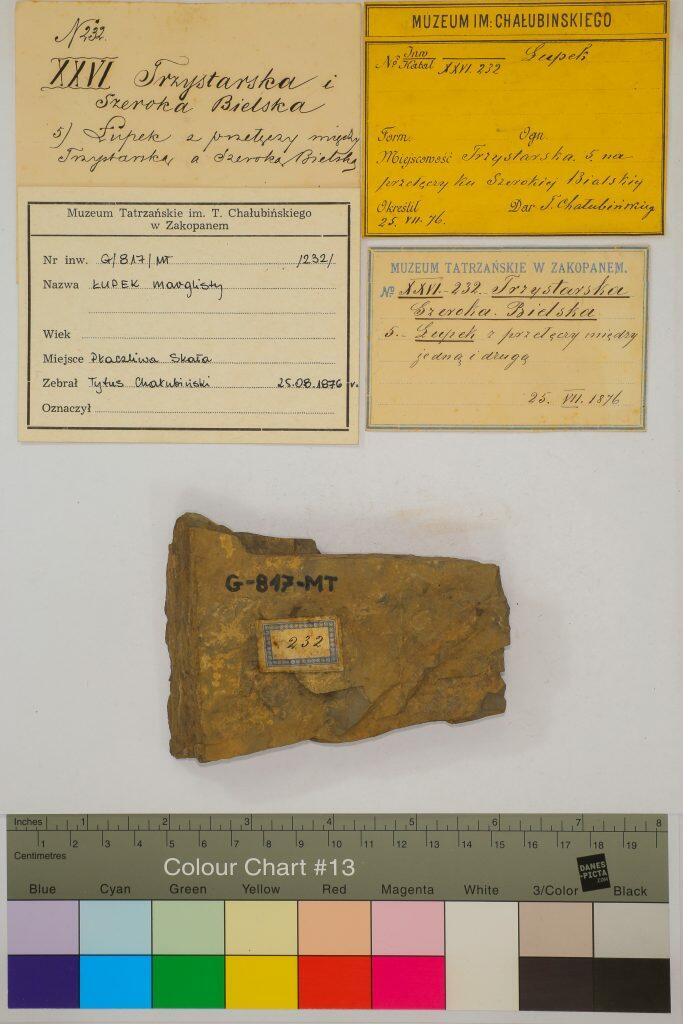 N 232.
XXVI Trzystarska i
Szeroka Bielska
5) Łupek z przełęczy między
Trzystarską a Szeroką Bielską
MUZEUM IM: CHAŁUBINSKIEGO
Nº Inw
Katal XXVI. 232 Łupek
Form. Ogn.
Miejscowość Trzystarska. 5. na
przełęczy ku Szerokiej Bialskiej
Określił Dar T. Chałubińskiego
25. VII. 76.
Muzeum Tatrzańskie im. T. Chałubińskiego
w Zakopanem
Nr inw. G/817/MT /232/
Nazwa ŁUPEK marglisty
Wiek
Miejsce Płaczliwa Skała
Zebrał Tytus Chałubiński 25.08.1876 r.
Oznaczył
MUZEUM TATRZAŃSKIE W ZAKOPANEM.
Nº XXVI-232. Trzystarska
Szeroka. Bielska
5.- Łupek z przełęczy między
jedną i drugą
25. VII. 1876
G-817-MT
232
Inches 1 2 3 4 5 6 7 8
1 2 3 4 5 6 7 8 9 10 11 12 13 14 15 16 17 18 19
Centimetres
Colour Chart #13
DANES
-PICTA
.COM
Blue Cyan Green Yellow Red Magenta White 3/Color Black